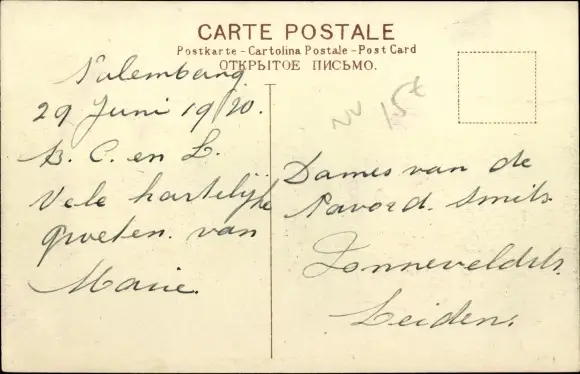 CARTE POSTALE
Postkarte - Cartolina Postale - Post Card
ОТКРЫТОЕ ПИСЬМО.
Palembang
29 Juni 1920.
B. C. en L.
Vele hartelijke
groeten. van
Marie.
15€
Dames van de
Pavord. Smits.
Zonneveldstr.
Leiden.